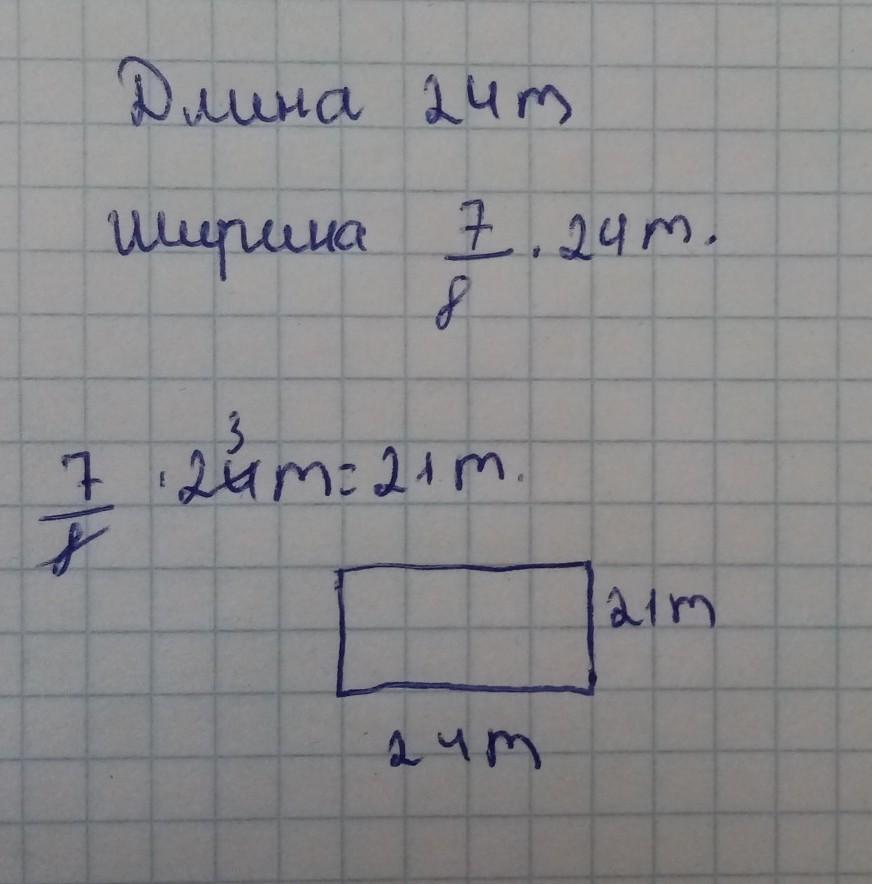 Длина 24m
ширина 7/8 · 24m.
3
7/8 · 24m = 21m.
21m
24m